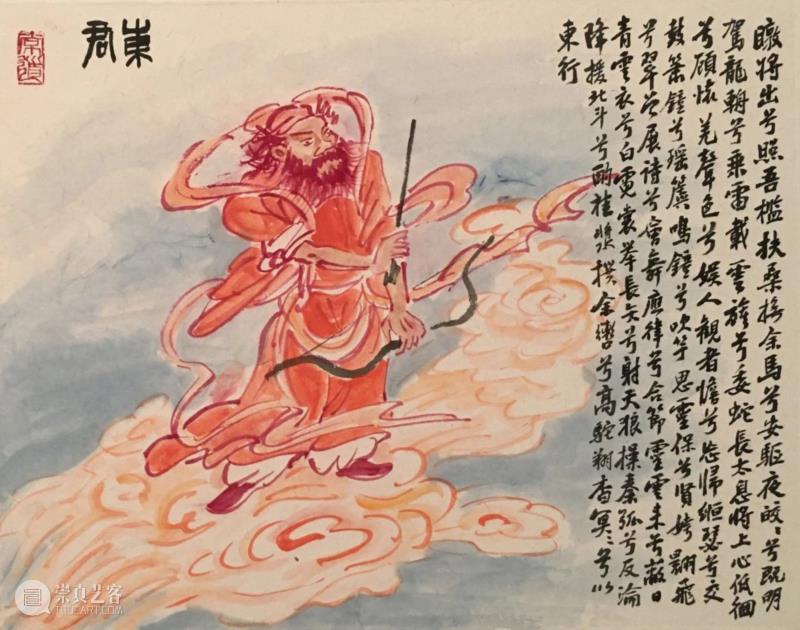 東君
暾將出兮照吾檻扶桑撫余馬兮安驅夜皎〻兮既明
駕龍輈兮乘雷載雲旗兮委蛇長太息將上心低徊
兮顧懷羌聲色兮娛人觀者憺兮忘歸緪瑟兮交
鼓簫鐘兮瑤簴鳴鐘兮吹竽思靈保兮賢姱翾飛
兮翠曾展詩兮會舞應律兮合節靈雲來兮蔽日
青雲衣兮白霓裳舉長矢兮射天狼操秦弧兮反淪
降援北斗兮酌桂漿撰余轡兮高駝翔杳冥〻兮以
東行
崇真艺客
TRUEART.COM